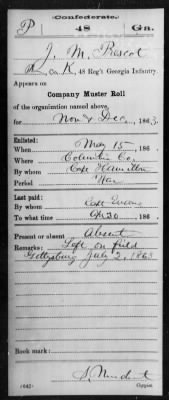 Confederate.
P 48 Ga.
J. M. Prescot
Co. K, 48 Reg't Georgia Infantry.
Appears on
Company Muster Roll
of the organization named above,
for Nov & Dec, 1863.
Enlisted:
When May 15, 186
Where Columbia Co.
By whom Capt Hamilton
Period War
Last paid:
By whom Capt Evans
To what time Oct 30, 186
Present or absent Absent
Remarks: Left on field
Gettysburg July 2, 1863
Book mark:
(642) Copyist.